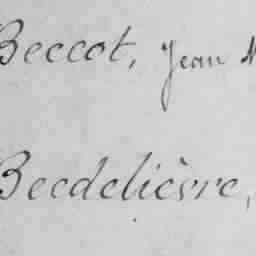 Beccot, Jean
Becdelièvre,